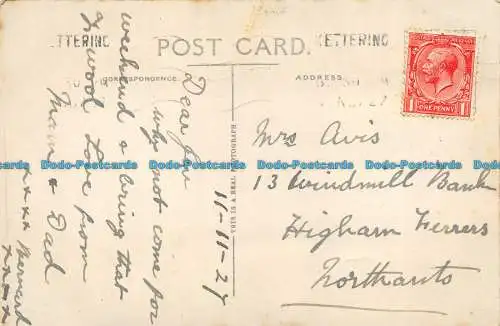 KETTERING
KETTERING
POST CARD.
CORRESPONDENCE.
ADDRESS.
ONE PENNY
11-11-27
Dear Jim
why not come for
weekend & bring that
wood Love from
Mam & Dad
xxxx Bernard
xxxx
THIS IS A REAL PHOTOGRAPH
Mrs Avis
13 Windmill Bank
Higham Ferrers
Northants
Dodo-Postcards Dodo-Postcards Dodo-Postcards Dodo-Postcards